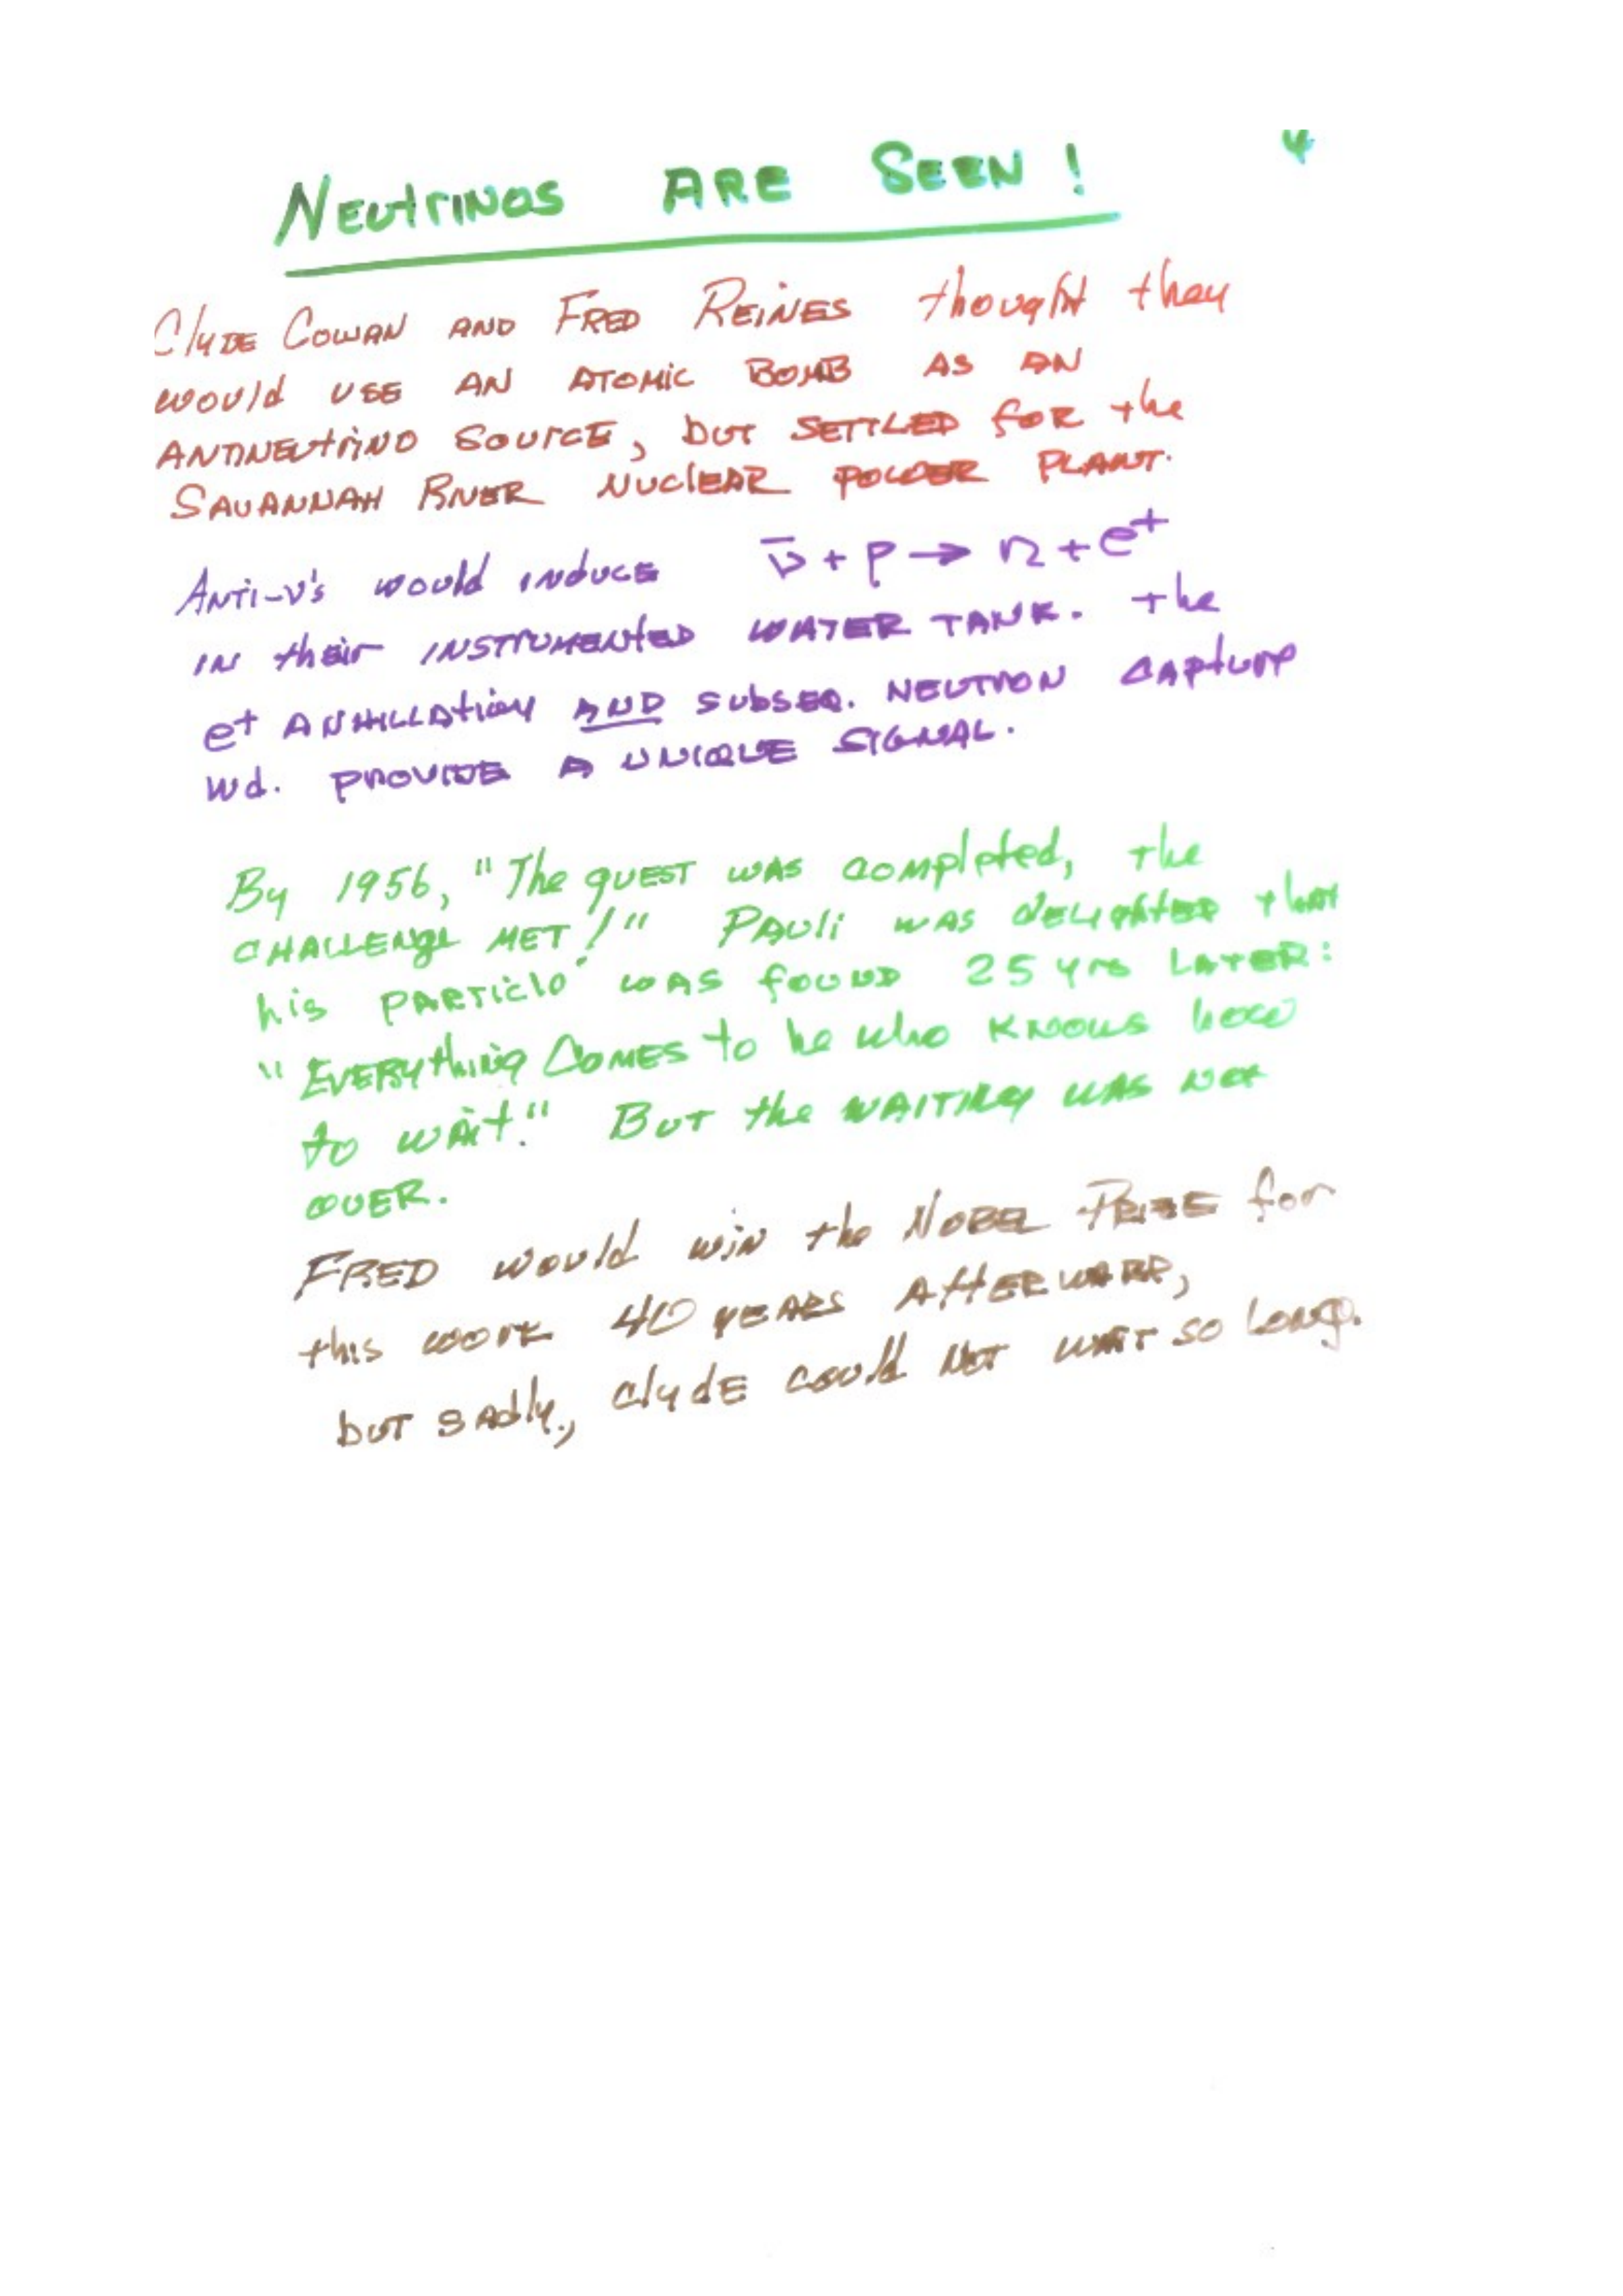 4
NEUTRINOS ARE SEEN!
CLYDE COWAN AND FRED REINES thought they
would USE AN ATOMIC BOMB AS AN
ANTINEUTRINO SOURCE, but SETTLED FOR the
SAVANNAH RIVER NUCLEAR POWER PLANT.
ANTI-ν's would INDUCE ν̅ + p → n + e⁺
IN their INSTRUMENTED WATER TANK. The
e⁺ ANHILLATION AND SUBSEQ. NEUTRON CAPTURE
wd. PROVIDE A UNIQUE SIGNAL.
By 1956, "The QUEST WAS completed, the
CHALLENGE MET!" PAULI WAS DELIGHTED that
his PARTICLE WAS found 25 yrs LATER:
"EVERYTHING COMES to he who KNOWS how
to wait." BUT the WAITING WAS NOT
OVER.
FRED would win the NOBEL PRIZE for
this work 40 YEARS AFTERWARD,
but SADLY, CLYDE could NOT WAIT SO LONG.